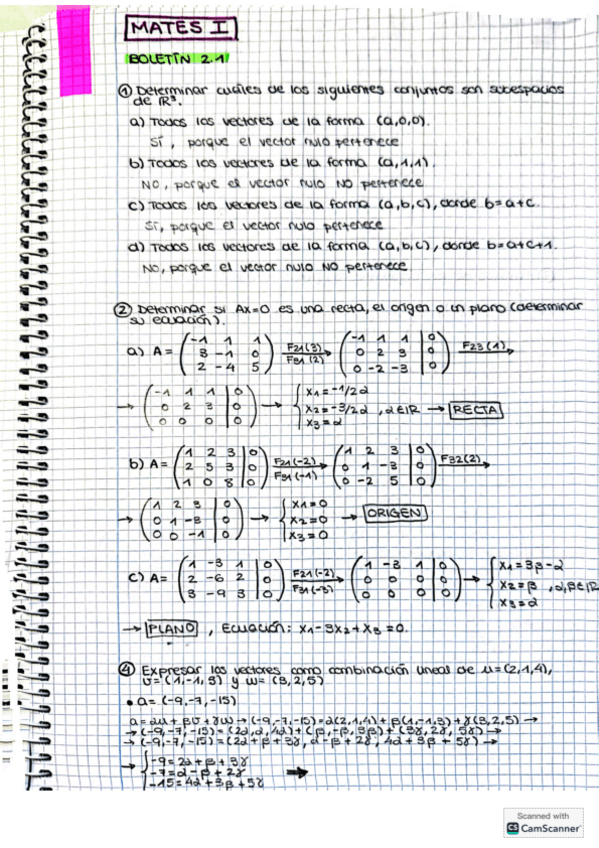 MATES I
BOLETÍN 2.1
① Determinar cuáles de los siguientes conjuntos son subespacios
de ℝ³.
a) Todos los vectores de la forma (a,0,0).
Sí, porque el vector nulo pertenece
b) Todos los vectores de la forma (a,1,1).
NO, porque el vector nulo NO pertenece
c) Todos los vectores de la forma (a,b,c), donde b=a+c.
Sí, porque el vector nulo pertenece
d) Todos los vectores de la forma (a,b,c), donde b=a+c+1.
No, porque el vector nulo NO pertenece
② Determinar si Ax=0 es una recta, el origen o un plano (determinar
su ecuación).
a) A = (-1 1 1; 3 -1 0; 2 -4 5) F21(3) F31(2) → (-1 1 1 | 0; 0 2 3 | 0; 0 -2 -3 | 0) F23(1) →
→ (-1 1 1 | 0; 0 2 3 | 0; 0 0 0 | 0) → { x1=-1/2α x2=-3/2α x3=α , α∈ℝ → RECTA
b) A = (1 2 3 | 0; 2 5 3 | 0; 1 0 8 | 0) F21(-2) F31(-1) → (1 2 3 | 0; 0 1 -3 | 0; 0 -2 5 | 0) F32(2) →
→ (1 2 3 | 0; 0 1 -3 | 0; 0 0 -1 | 0) → { x1=0 x2=0 x3=0 → ORIGEN
c) A = (1 -3 1 | 0; 2 -6 2 | 0; 3 -9 3 | 0) F21(-2) F31(-3) → (1 -3 1 | 0; 0 0 0 | 0; 0 0 0 | 0) → { x1=3β-α x2=β x3=α , α,β∈ℝ
→ PLANO , Ecuación: x1-3x2+x3=0.
④ Expresar los vectores como combinación lineal de u=(2,1,4),
v=(1,-1,3) y w=(3,2,5)
• a=(-9,-7,-15)
a=αu+βv+γw → (-9,-7,-15)=α(2,1,4)+β(1,-1,3)+γ(3,2,5) →
→ (-9,-7,-15)=(2α,α,4α)+(β,-β,3β)+(3γ,2γ,5γ) →
→ (-9,-7,-15)=(2α+β+3γ, α-β+2γ, 4α+3β+5γ) →
→ { -9=2α+β+3γ
-7=α-β+2γ →
-15=4α+3β+5γ
Scanned with
CS CamScanner